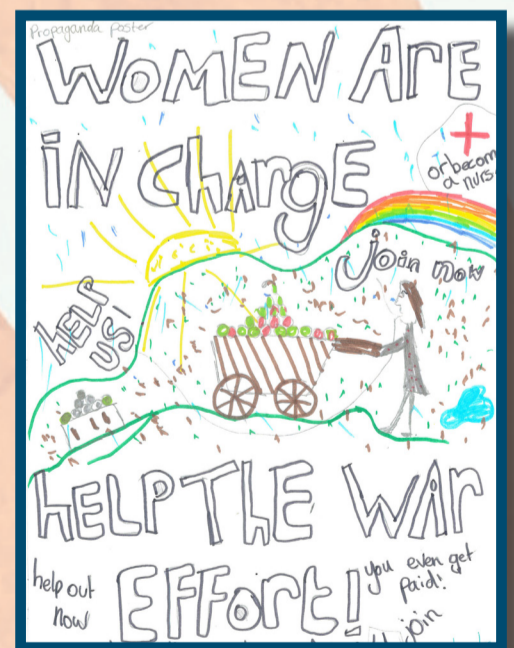 Propaganda Poster
WOMEN ArE
iN ChArgE
or become
a nurs
join now
HELP
US!
hELP ThE WAr
EFForT!
help out
now
you even get
paid!
join